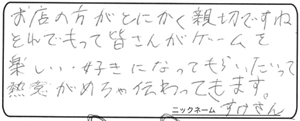 お店の方がとにかく親切ですね
とんでもって皆さんがゲームを
楽しい・好きになってもらいたいって
熱意がめちゃ伝わってもます。
ニックネーム すけさん